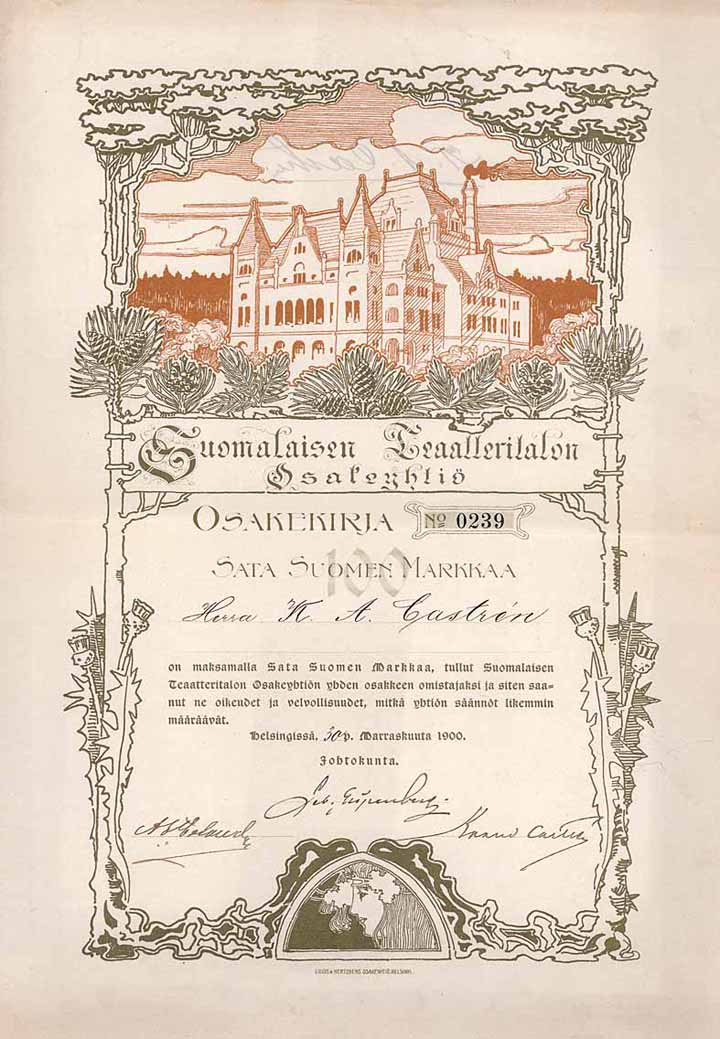 Suomalaisen Teaatteritalon
Osakeyhtiö
OSAKEKIRJA № 0239
100
SATA SUOMEN MARKKAA
Herra K. A. Castrén
on maksamalla Sata Suomen Markkaa, tullut Suomalaisen
Teaatteritalon Osakeyhtiön yhden osakkeen omistajaksi ja siten saa-
nut ne oikeudet ja velvollisuudet, mitkä yhtiön säännöt likemmin
määräävät.
Helsingissä, 30 p. Marraskuuta 1900.
Johtokunta.
LILIUS & HERTZBERG OSAKEYHTIÖ, HELSINKI.